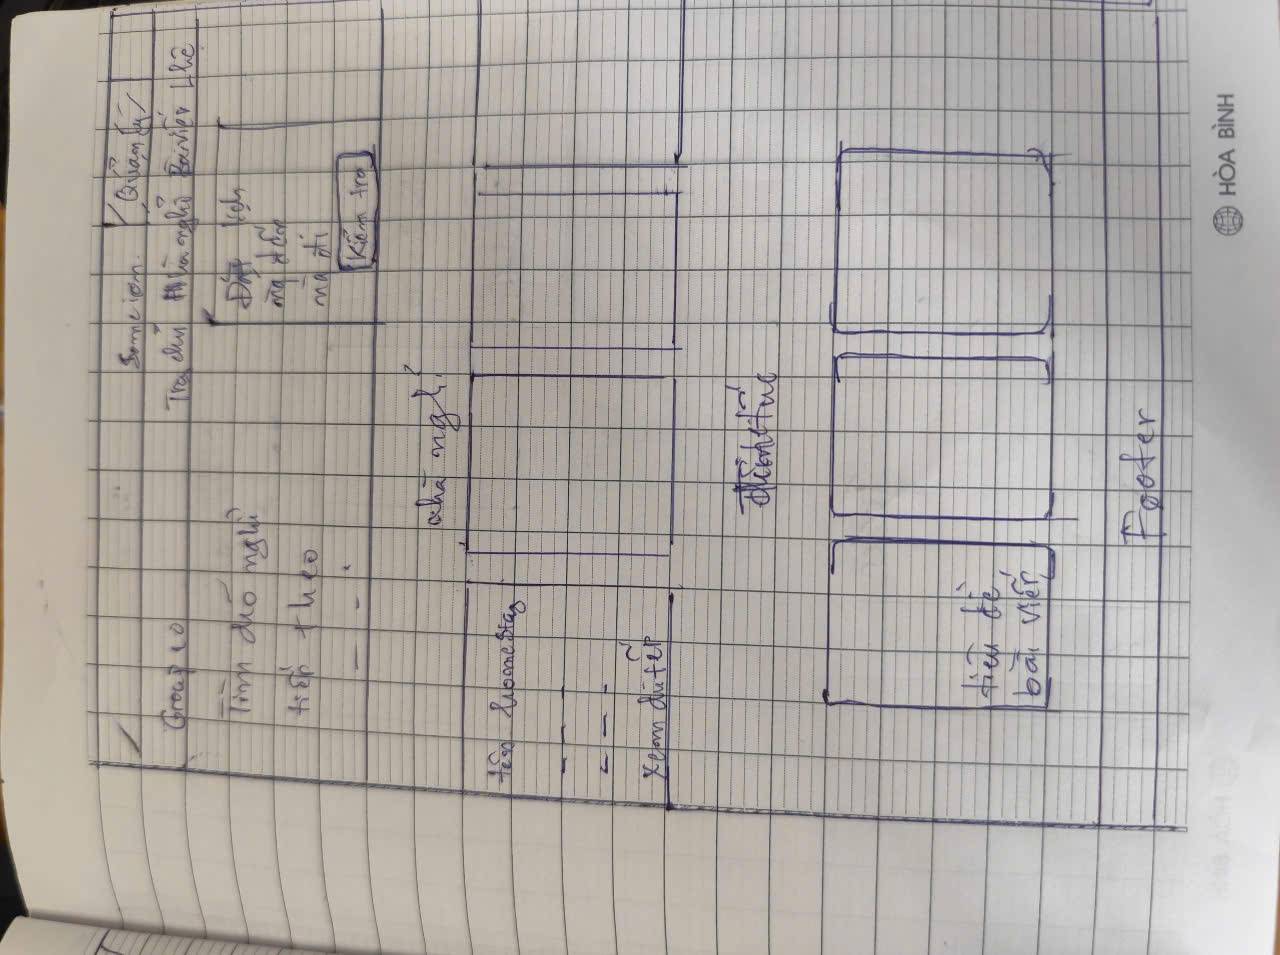 Quản lý
Group 10
Trang chủ Nhà nghỉ Bài viết L hệ
Tìm chỗ nghỉ
tiếp theo
Đặt lịch
ng đến
ng đi
Kiểm tra
nhà nghỉ
tên homestay
xem
tiêu đề
bài viết
Footer
HÒA BÌNH